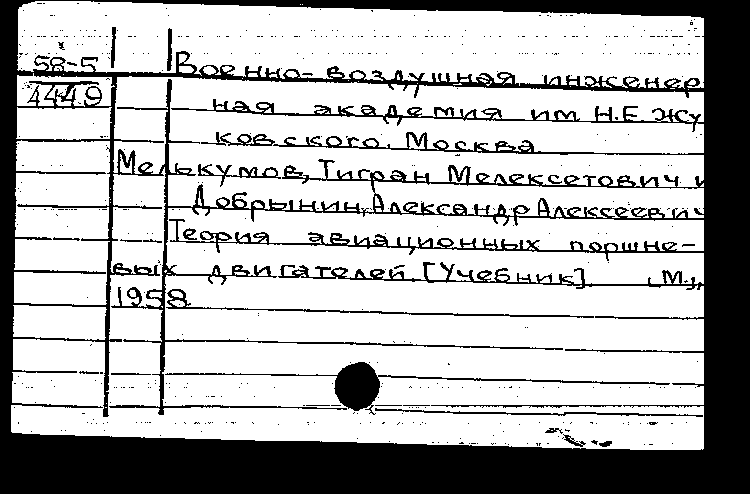 58-5
4449
Военно-воздушная инженер
ная академия им. Н.Е. Жу
ковского. Москва
Мелькумов, Тигран Мелексетович и
Добрынин, Александр Алексеевич
Теория авиационных поршне-
вых двигателей. [Учебник]. М.,
1958